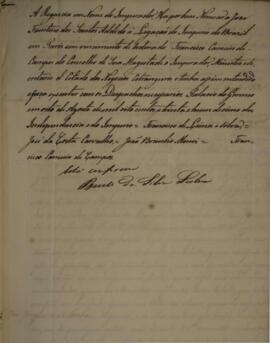 A Regencia em Nome do Imperador Ha por bem Nomear a João
dos Santos Addido á Legação do Imperio do Brazil
em vencimento de Ordenado Francisco Carneiro de
Campos do Conselho de Sua Magestade o Imperador, Ministro e Se-
cretario d'Estado dos Negocios Estrangeiros o tenha assim entendido
e faça expedir com os Despachos necessarios. Palacio do Rio de Jan
de Agosto de mil oito centos e trinta e hum decimo da
Independencia e do Imperio = Francisco de Lima e Silva =
José da Costa Carvalho = João Braulio Moniz = Fran-
cisco Carneiro de Campos
Está conforme
Bento da Silva Lisboa